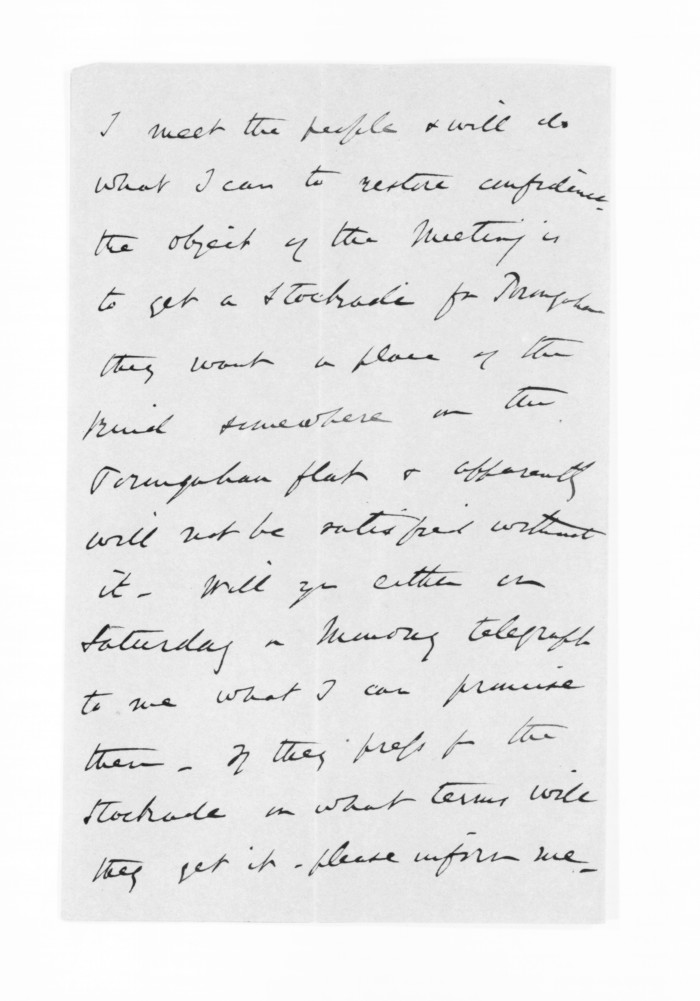 I meet the people & will do
what I can to restore confidence
the object of the Meeting is
to get a Stockade for Turingahau
they want a place of the
kind somewhere on the
Turingahau flat & apparently
will not be satisfied without
it - Will you either on
Saturday or Monday telegraph
to me what I can promise
them - If they press for the
Stockade on what terms will
they get it - please inform me -